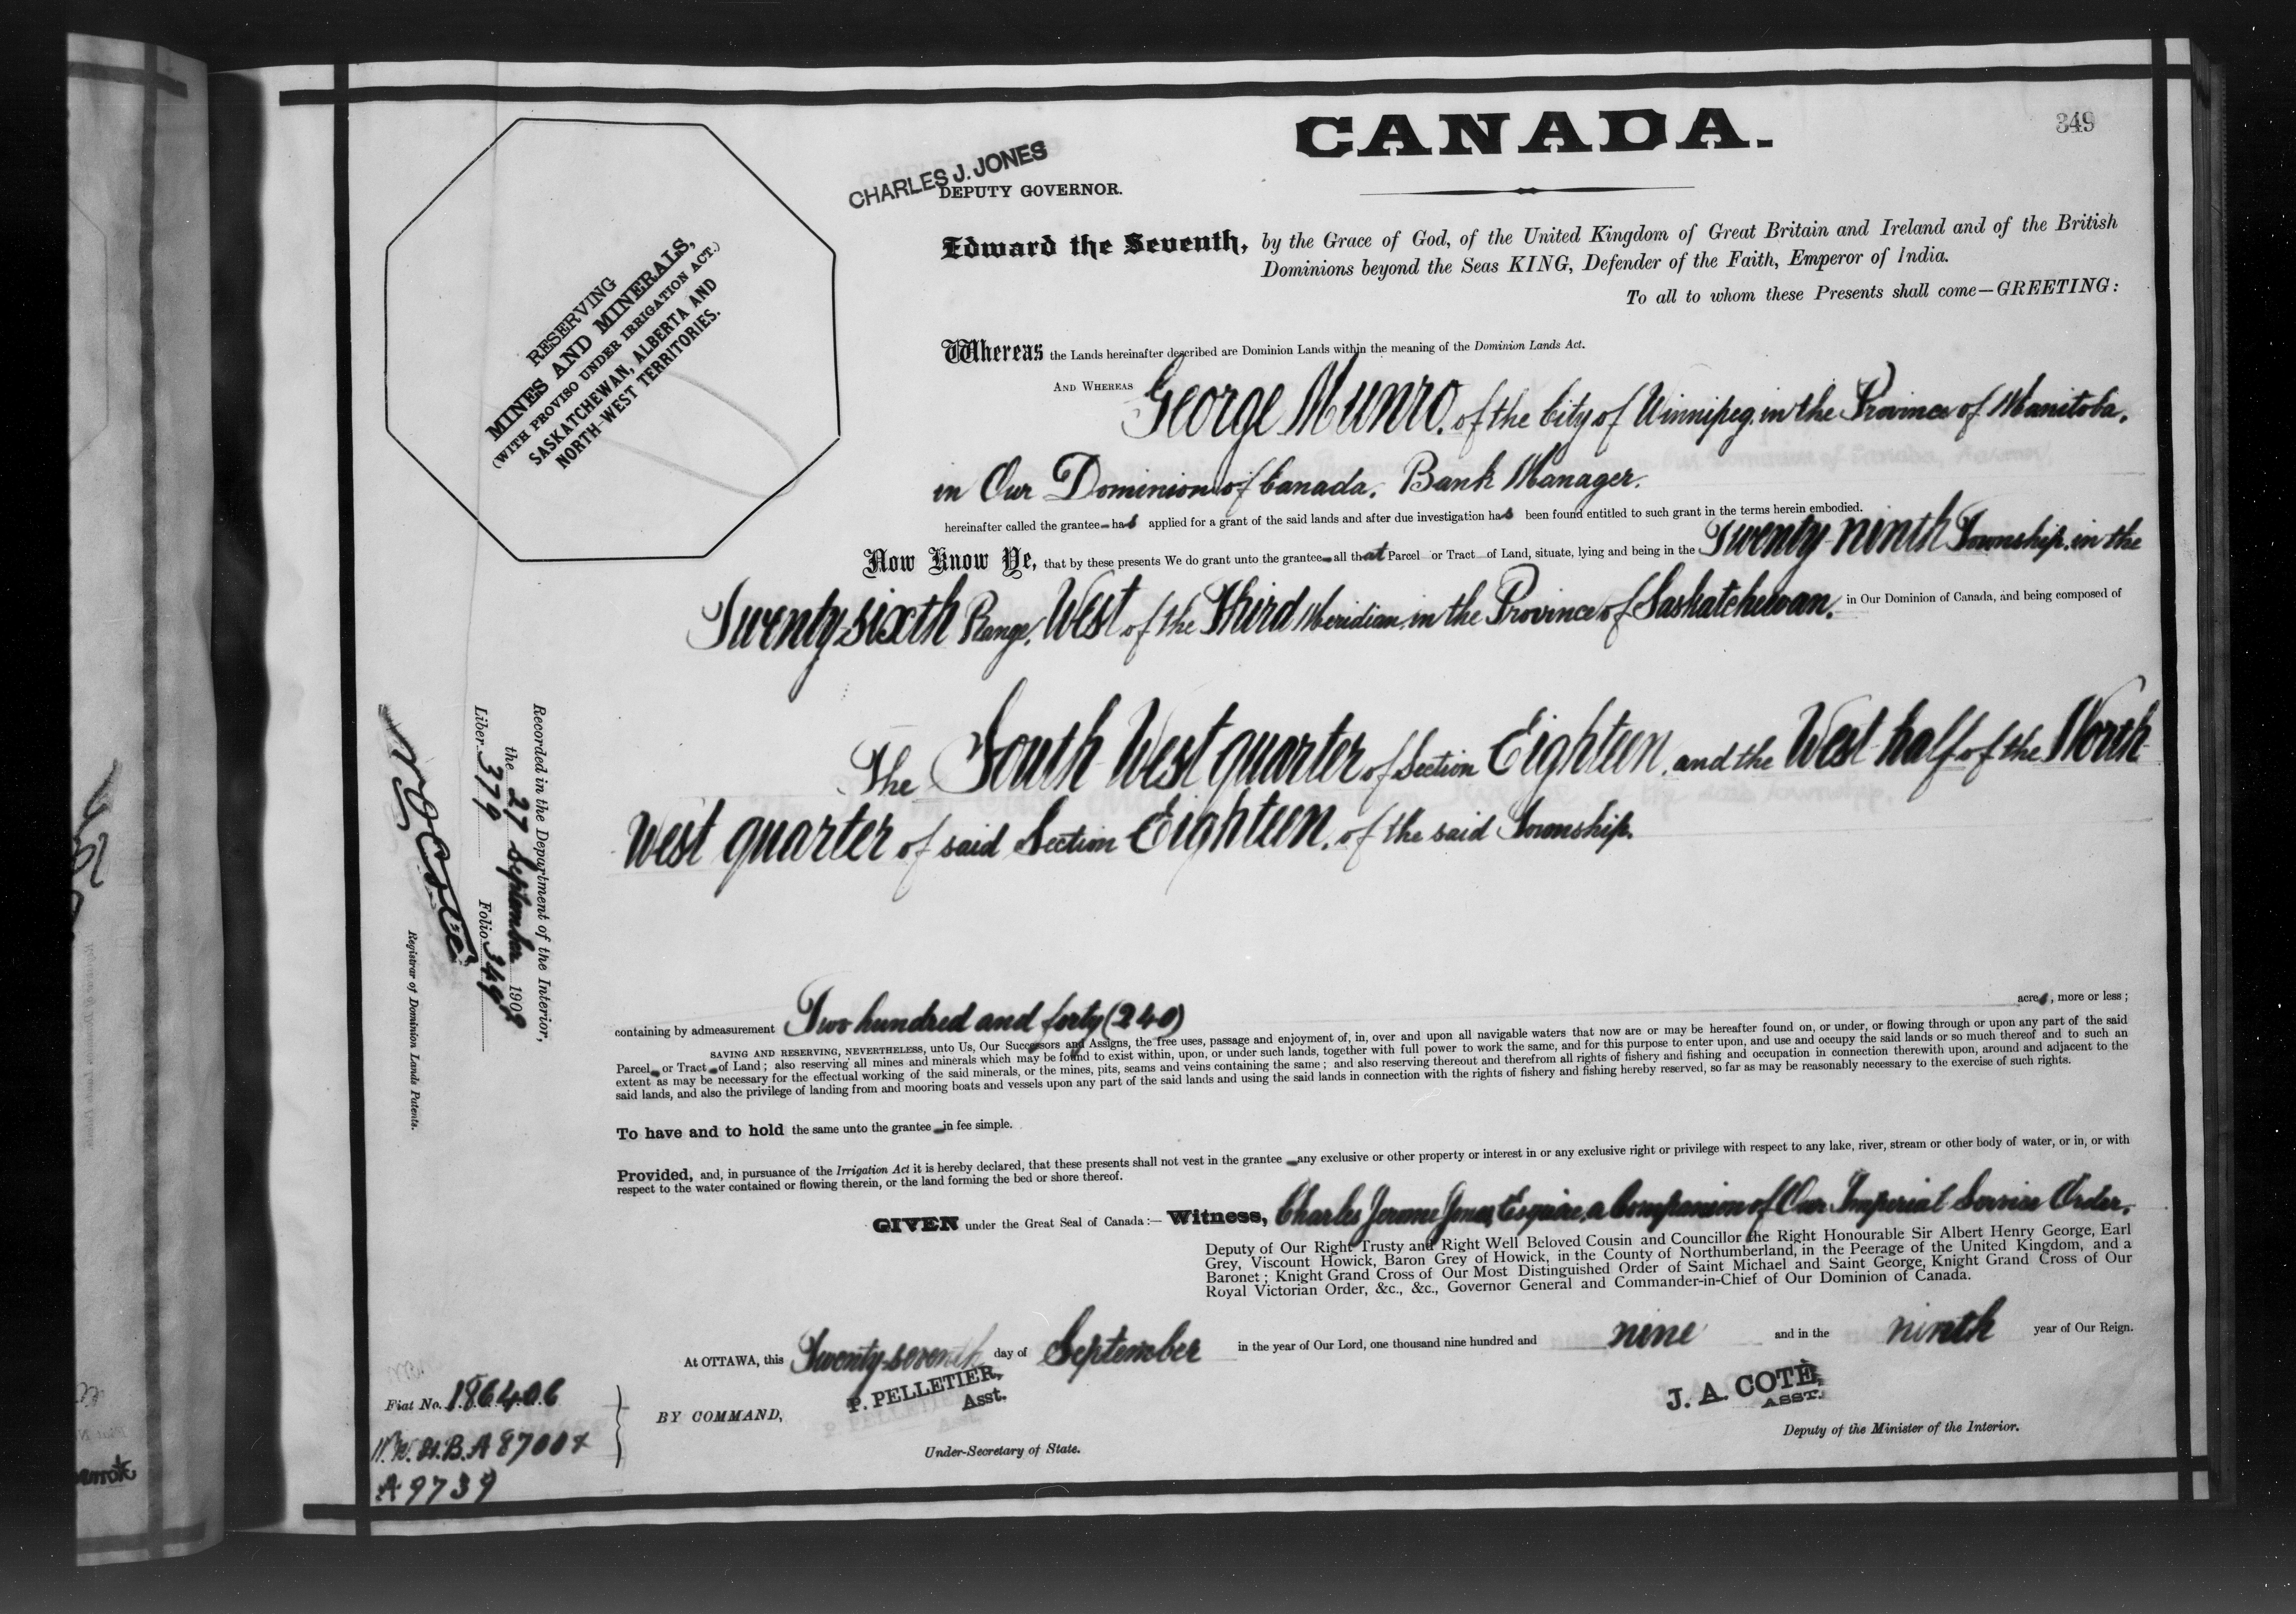 CANADA.
349
CHARLES J. JONES
DEPUTY GOVERNOR.
RESERVING
MINES AND MINERALS,
(WITH PROVISO UNDER IRRIGATION ACT.)
SASKATCHEWAN, ALBERTA AND
NORTH-WEST TERRITORIES.
Edward the Seventh, by the Grace of God, of the United Kingdom of Great Britain and Ireland and of the British
Dominions beyond the Seas KING, Defender of the Faith, Emperor of India.
To all to whom these Presents shall come—GREETING:
Whereas the Lands hereinafter described are Dominion Lands within the meaning of the Dominion Lands Act.
AND WHEREAS George Munro, of the City of Winnipeg, in the Province of Manitoba,
in Our Dominion of Canada, Bank Manager.
hereinafter called the grantee has applied for a grant of the said lands and after due investigation has been found entitled to such grant in the terms herein embodied.
Now Know Ye, that by these presents We do grant unto the grantee all that Parcel or Tract of Land, situate, lying and being in the Twenty-ninth Township, in the
Twenty-sixth Range, West of the Third Meridian, in the Province of Saskatchewan, in Our Dominion of Canada, and being composed of
The South West quarter of Section Eighteen, and the West half of the North
West quarter of said Section Eighteen, of the said Township.
containing by admeasurement Two hundred and forty (240) acres, more or less;
SAVING AND RESERVING, NEVERTHELESS, unto Us, Our Successors and Assigns, the free uses, passage and enjoyment of, in, over and upon all navigable waters that now are or may be hereafter found on, or under, or flowing through or upon any part of the said
Parcel or Tract of Land; also reserving all mines and minerals which may be found to exist within, upon, or under such lands, together with full power to work the same, and for this purpose to enter upon, and use and occupy the said lands or so much thereof and to such an
extent as may be necessary for the effectual working of the said minerals, or the mines, pits, seams and veins containing the same; and also reserving thereout and therefrom all rights of fishery and fishing and occupation in connection therewith upon, around and adjacent to the
said lands, and also the privilege of landing from and mooring boats and vessels upon any part of the said lands and using the said lands in connection with the rights of fishery and fishing hereby reserved, so far as may be reasonably necessary to the exercise of such rights.
To have and to hold the same unto the grantee in fee simple.
Provided, and, in pursuance of the Irrigation Act it is hereby declared, that these presents shall not vest in the grantee any exclusive or other property or interest in or any exclusive right or privilege with respect to any lake, river, stream or other body of water, or in, or with
respect to the water contained or flowing therein, or the land forming the bed or shore thereof.
GIVEN under the Great Seal of Canada:— Witness, Charles Jerome Jones, Esquire, a Companion of Our Imperial Service Order,
Deputy of Our Right Trusty and Right Well Beloved Cousin and Councillor the Right Honourable Sir Albert Henry George, Earl
Grey, Viscount Howick, Baron Grey of Howick, in the County of Northumberland, in the Peerage of the United Kingdom, and a
Baronet; Knight Grand Cross of Our Most Distinguished Order of Saint Michael and Saint George, Knight Grand Cross of Our
Royal Victorian Order, &c., &c., Governor General and Commander-in-Chief of Our Dominion of Canada.
At OTTAWA, this Twenty-seventh day of September in the year of Our Lord, one thousand nine hundred and nine and in the ninth year of Our Reign.
BY COMMAND,
P. PELLETIER,
Asst.
Under-Secretary of State.
J. A. COTÉ,
ASST.
Deputy of the Minister of the Interior.
Recorded in the Department of the Interior,
the 27 September 1909
Liber 379 Folio 349
Registrar of Dominion Lands Patents.
Fiat No. 186406
B.A 8700
A 9739